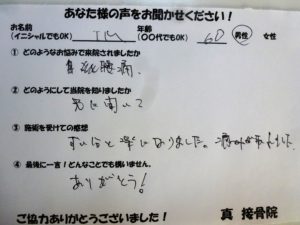 あなた様の声をお聞かせください!
お名前 (イニシャルでもOK) 年齢 (〇〇代でもOK) 60 男性 女性
① どのようなお悩みで来院されましたか
腰痛.
② どのようにして当院を知りましたか
に聞いて
③ 施術を受けての感想
ずいぶんと楽になりました。
④ 最後に一言!どんなことでも構いません。
ありがとう!
ご協力ありがとうございました! 真 接骨院